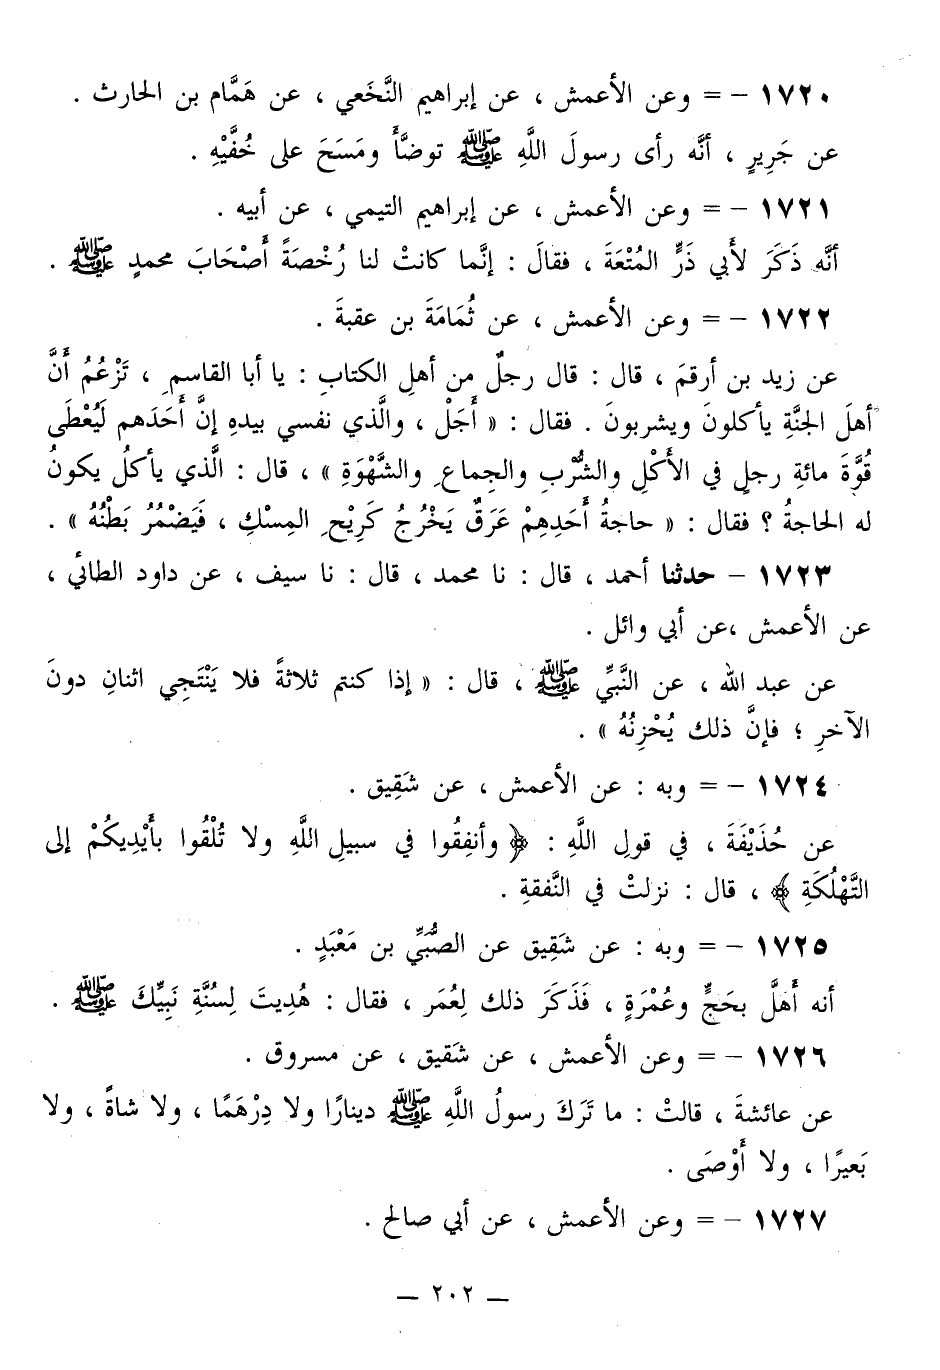 ١٧٢٠ – = وعن الأعمش ، عن إبراهيم النَّخَعي ، عن هَمَّام بن الحارث .
عن جَرِيرٍ ، أنَّه رأى رسولَ اللَّهِ ﷺ توضَّأَ ومَسَحَ على خُفَّيْهِ .
١٧٢١ – = وعن الأعمش ، عن إبراهيم التيمي ، عن أبيه .
أنَّه ذَكَرَ لأَبي ذَرٍّ المُتْعَةَ ، فقالَ : إنَّما كانتْ لنا رُخْصَةً أَصْحَابَ محمدٍ ﷺ .
١٧٢٢ – = وعن الأعمش ، عن ثُمَامَةَ بن عقبةَ .
عن زيد بن أرقمَ ، قال : قال رجلٌ من أهلِ الكتابِ : يا أبا القاسمِ ، تَزْعُمُ أَنَّ
أهلَ الجنَّةِ يأكلونَ ويشربونَ . فقال : « أَجَلْ ، والَّذي نفسي بيدهِ إنَّ أَحَدَهم لَيُعْطَى
قُوَّةَ مائةِ رجلٍ في الأَكْلِ والشُّرْبِ والجِماعِ والشَّهْوَةِ » ، قال : الَّذي يأكلُ يكونُ
له الحاجةُ ؟ فقال : « حاجةُ أَحَدِهِمْ عَرَقٌ يَخْرُجُ كَرِيْحِ المِسْكِ ، فَيَضْمُرُ بَطْنُهُ » .
١٧٢٣ – حدثنا أحمد ، قال : نا محمد ، قال : نا سيف ، عن داود الطائي ،
عن الأعمش ،عن أبي وائل .
عن عبد الله ، عن النَّبيِّ ﷺ ، قال : « إذا كنتم ثلاثةً فلا يَنْتَجِي اثنانِ دونَ
الآخرِ ؛ فإنَّ ذلك يُحْزِنُهُ » .
١٧٢٤ – = وبه : عن الأعمش ، عن شَقِيق .
عن حُذَيْفَةَ ، في قولِ اللَّهِ : ﴿ وأنفِقُوا في سبيلِ اللَّهِ ولا تُلْقُوا بأَيْدِيكُمْ إلى
التَّهْلُكَةِ ﴾ ، قال : نزلتْ في النَّفقةِ .
١٧٢٥ – = وبه : عن شَقِيق عن الصُّبَيِّ بن مَعْبَدٍ .
أنه أَهَلَّ بحَجٍّ وعُمْرَةٍ ، فَذَكَرَ ذلك لِعُمَر ، فقال : هُدِيتَ لِسُنَّةِ نَبِيِّكَ ﷺ .
١٧٢٦ – = وعن الأعمش ، عن شَقيق ، عن مسروق .
عن عائشةَ ، قالتْ : ما تَرَكَ رسولُ اللَّهِ ﷺ دينارًا ولا دِرْهَمًا ، ولا شاةً ، ولا
بَعيرًا ، ولا أَوْصَى .
١٧٢٧ – = وعن الأعمش ، عن أبي صالح .
— ٢٠٢ —